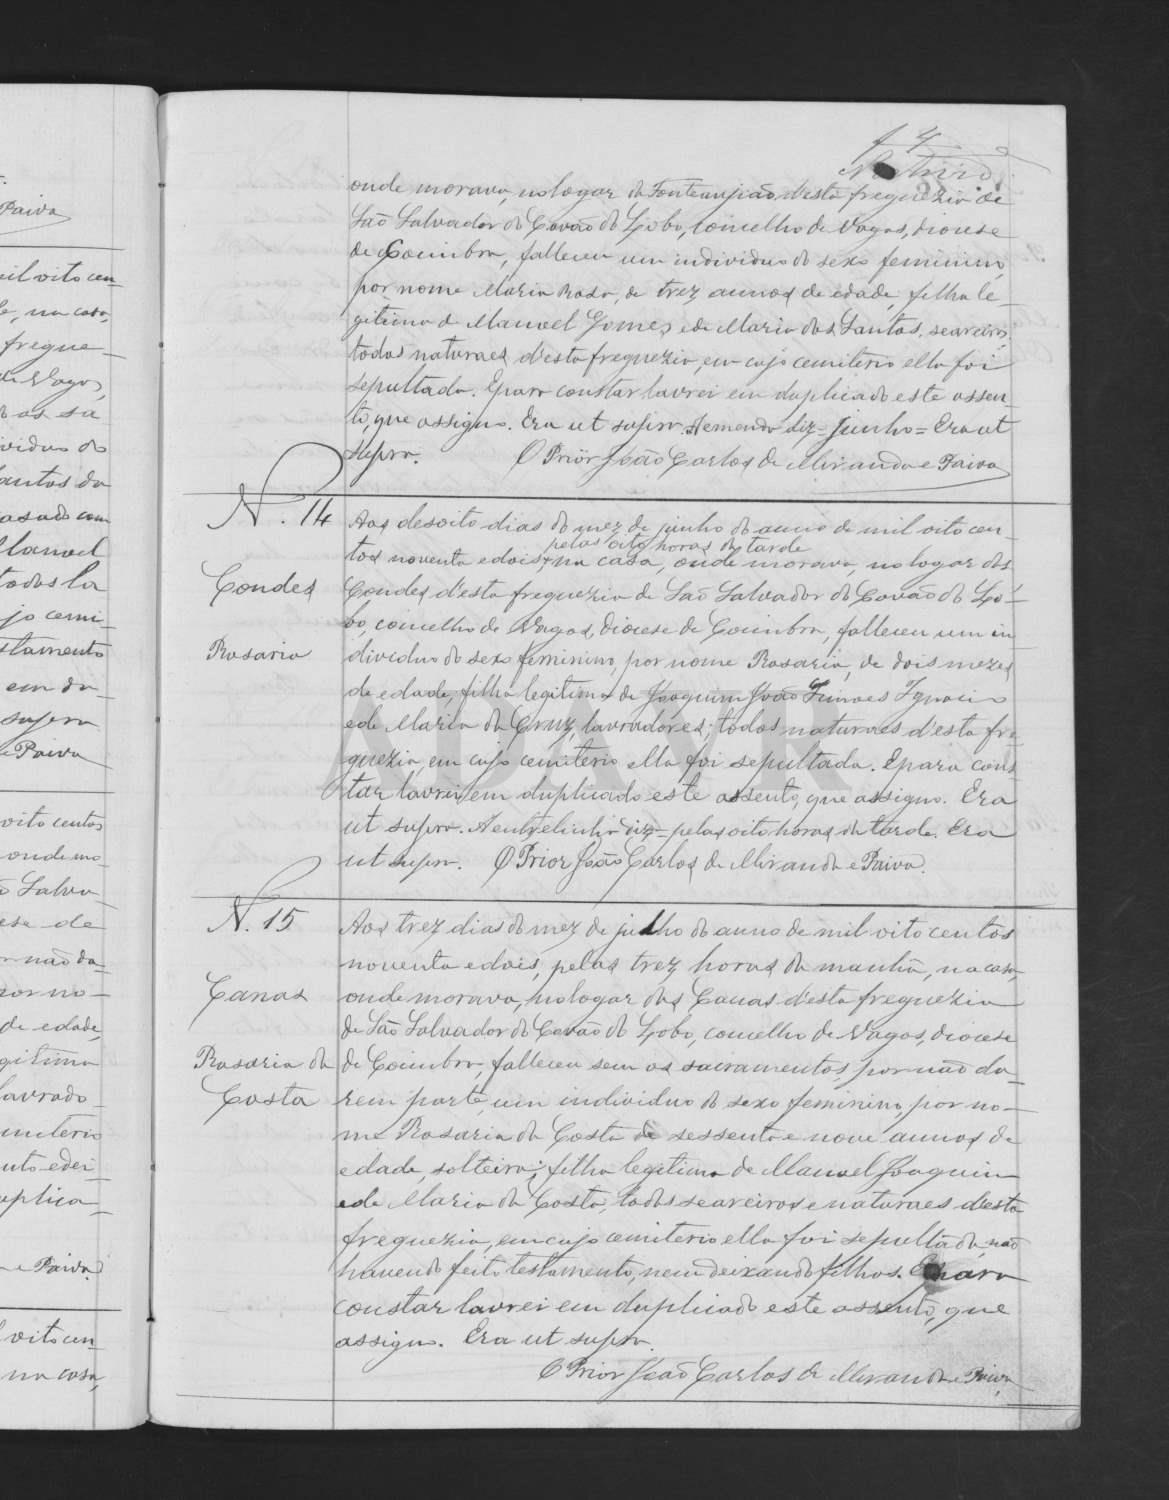 4
onde morava, no logar da Fonte anjiào d'esta freguezia de
São Salvador do Covão do Lobo, concelho de Vagos, diocese
de Coimbra, falleceu um individuo do sexo feminino,
por nome Maria Rosa, de trez annos de edade, filha le-
gitima de Manoel Gomes e de Maria dos Santos, seareiros,
todos naturaes d'esta freguezia, em cujo cemiterio ella foi
sepultada. E para constar lavrei em duplicado este assen-
to, que assigno. Era ut supra. A emenda diz = junho = Era ut
supra. O Prior João Carlos de Miranda e Paiva
N. 14
Condes
Rosaria
Aos desoito dias do mez de junho do anno de mil oito cen-
pelas oito horas da tarde
tos noventa e dois, na casa, onde morava, no logar dos
Condes d'esta freguezia de São Salvador do Covão do Lo-
bo, concelho de Vagos, diocese de Coimbra, falleceu um in
dividuo do sexo feminino, por nome Rosaria, de dois mezes
de edade, filha legitima de Joaquim João Ignacio
e de Maria da Cruz, lavradores; todos naturaes d'esta fre-
guezia, em cujo cemiterio ella foi sepultada. E para cons-
tar lavrei em duplicado este assento, que assigno. Era
ut supra. A entrelinha diz = pelas oito horas da tarde. Era
ut supra. O Prior João Carlos de Miranda e Paiva.
N. 15
Canas
Rosaria da
Costa
Aos trez dias do mez de julho do anno de mil oito centos
noventa e dois, pelas trez horas da manhã, na casa,
onde morava, no logar das Canas d'esta freguezia
de São Salvador do Covão do Lobo, concelho de Vagos, diocese
de Coimbra, falleceu sem os sacramentos, por não da-
rem parte, um individuo do sexo feminino, por no-
me Rosaria da Costa de sessenta e nove annos de
edade, solteira; filha legitima de Manoel Joaquim
e de Maria da Costa, todos seareiros e naturaes d'esta
freguezia, em cujo cemiterio ella foi sepultada, não
havendo feito testamento, nem deixando filhos. E para
constar lavrei em duplicado este assento, que
assigno. Era ut supra.
O Prior João Carlos de Miranda e Paiva
ADAVR
Paiva
mil oito cen-
na casa,
fregue-
de Vagos,
os sa
individuo do
Santos da
casado com
Manoel
todos la
cujo cemi-
testamento
em du-
supra
e Paiva
oito centos
onde mo-
Salva-
não da-
por no-
de edade,
legitima
lavrado-
cemiterio
duplica-
e Paiva
oito cen-
na casa,